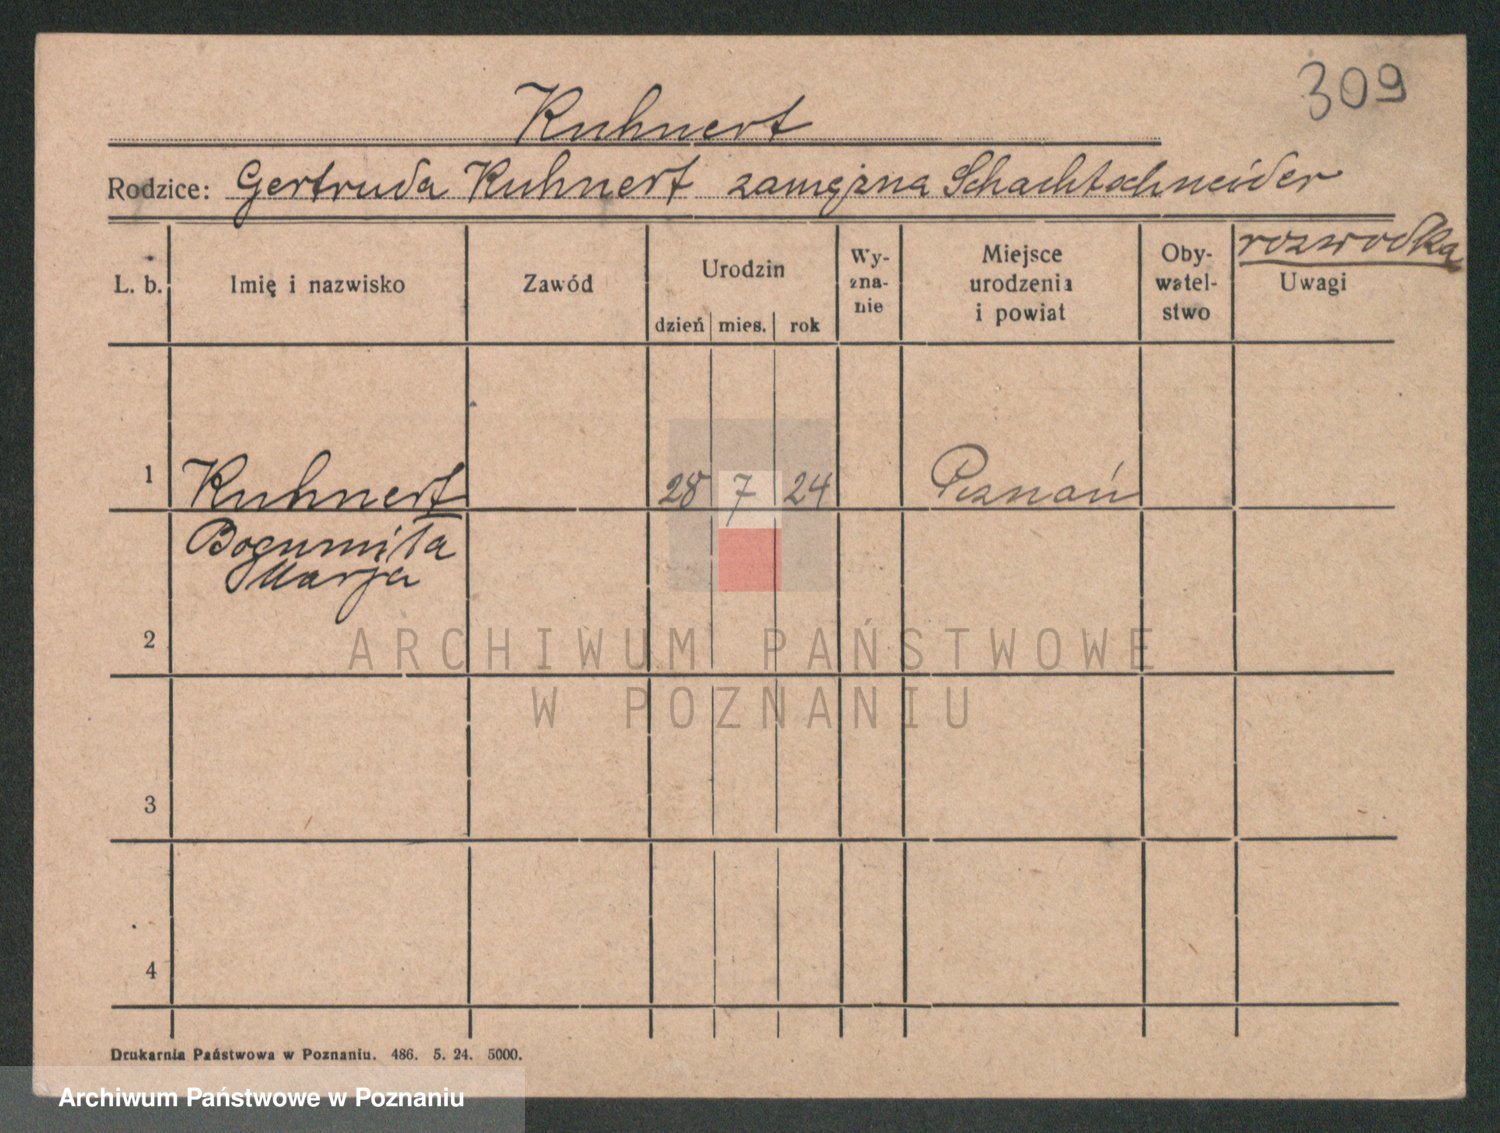 309
Kuhnert
Rodzice: Gertruda Kuhnert zamężna Schachtschneider
rozwodka
L. b. Imię i nazwisko Zawód Urodzin dzień mies. rok Wy-zna-nie Miejsce urodzenia i powiat Oby-watel-stwo Uwagi
1 Kuhnert 28 7 24 Poznań
Bogumiła
Marja
2
ARCHIWUM PAŃSTWOWE
W POZNANIU
3
4
Drukarnia Państwowa w Poznaniu. 486. 5. 24. 5000.
Archiwum Państwowe w Poznaniu